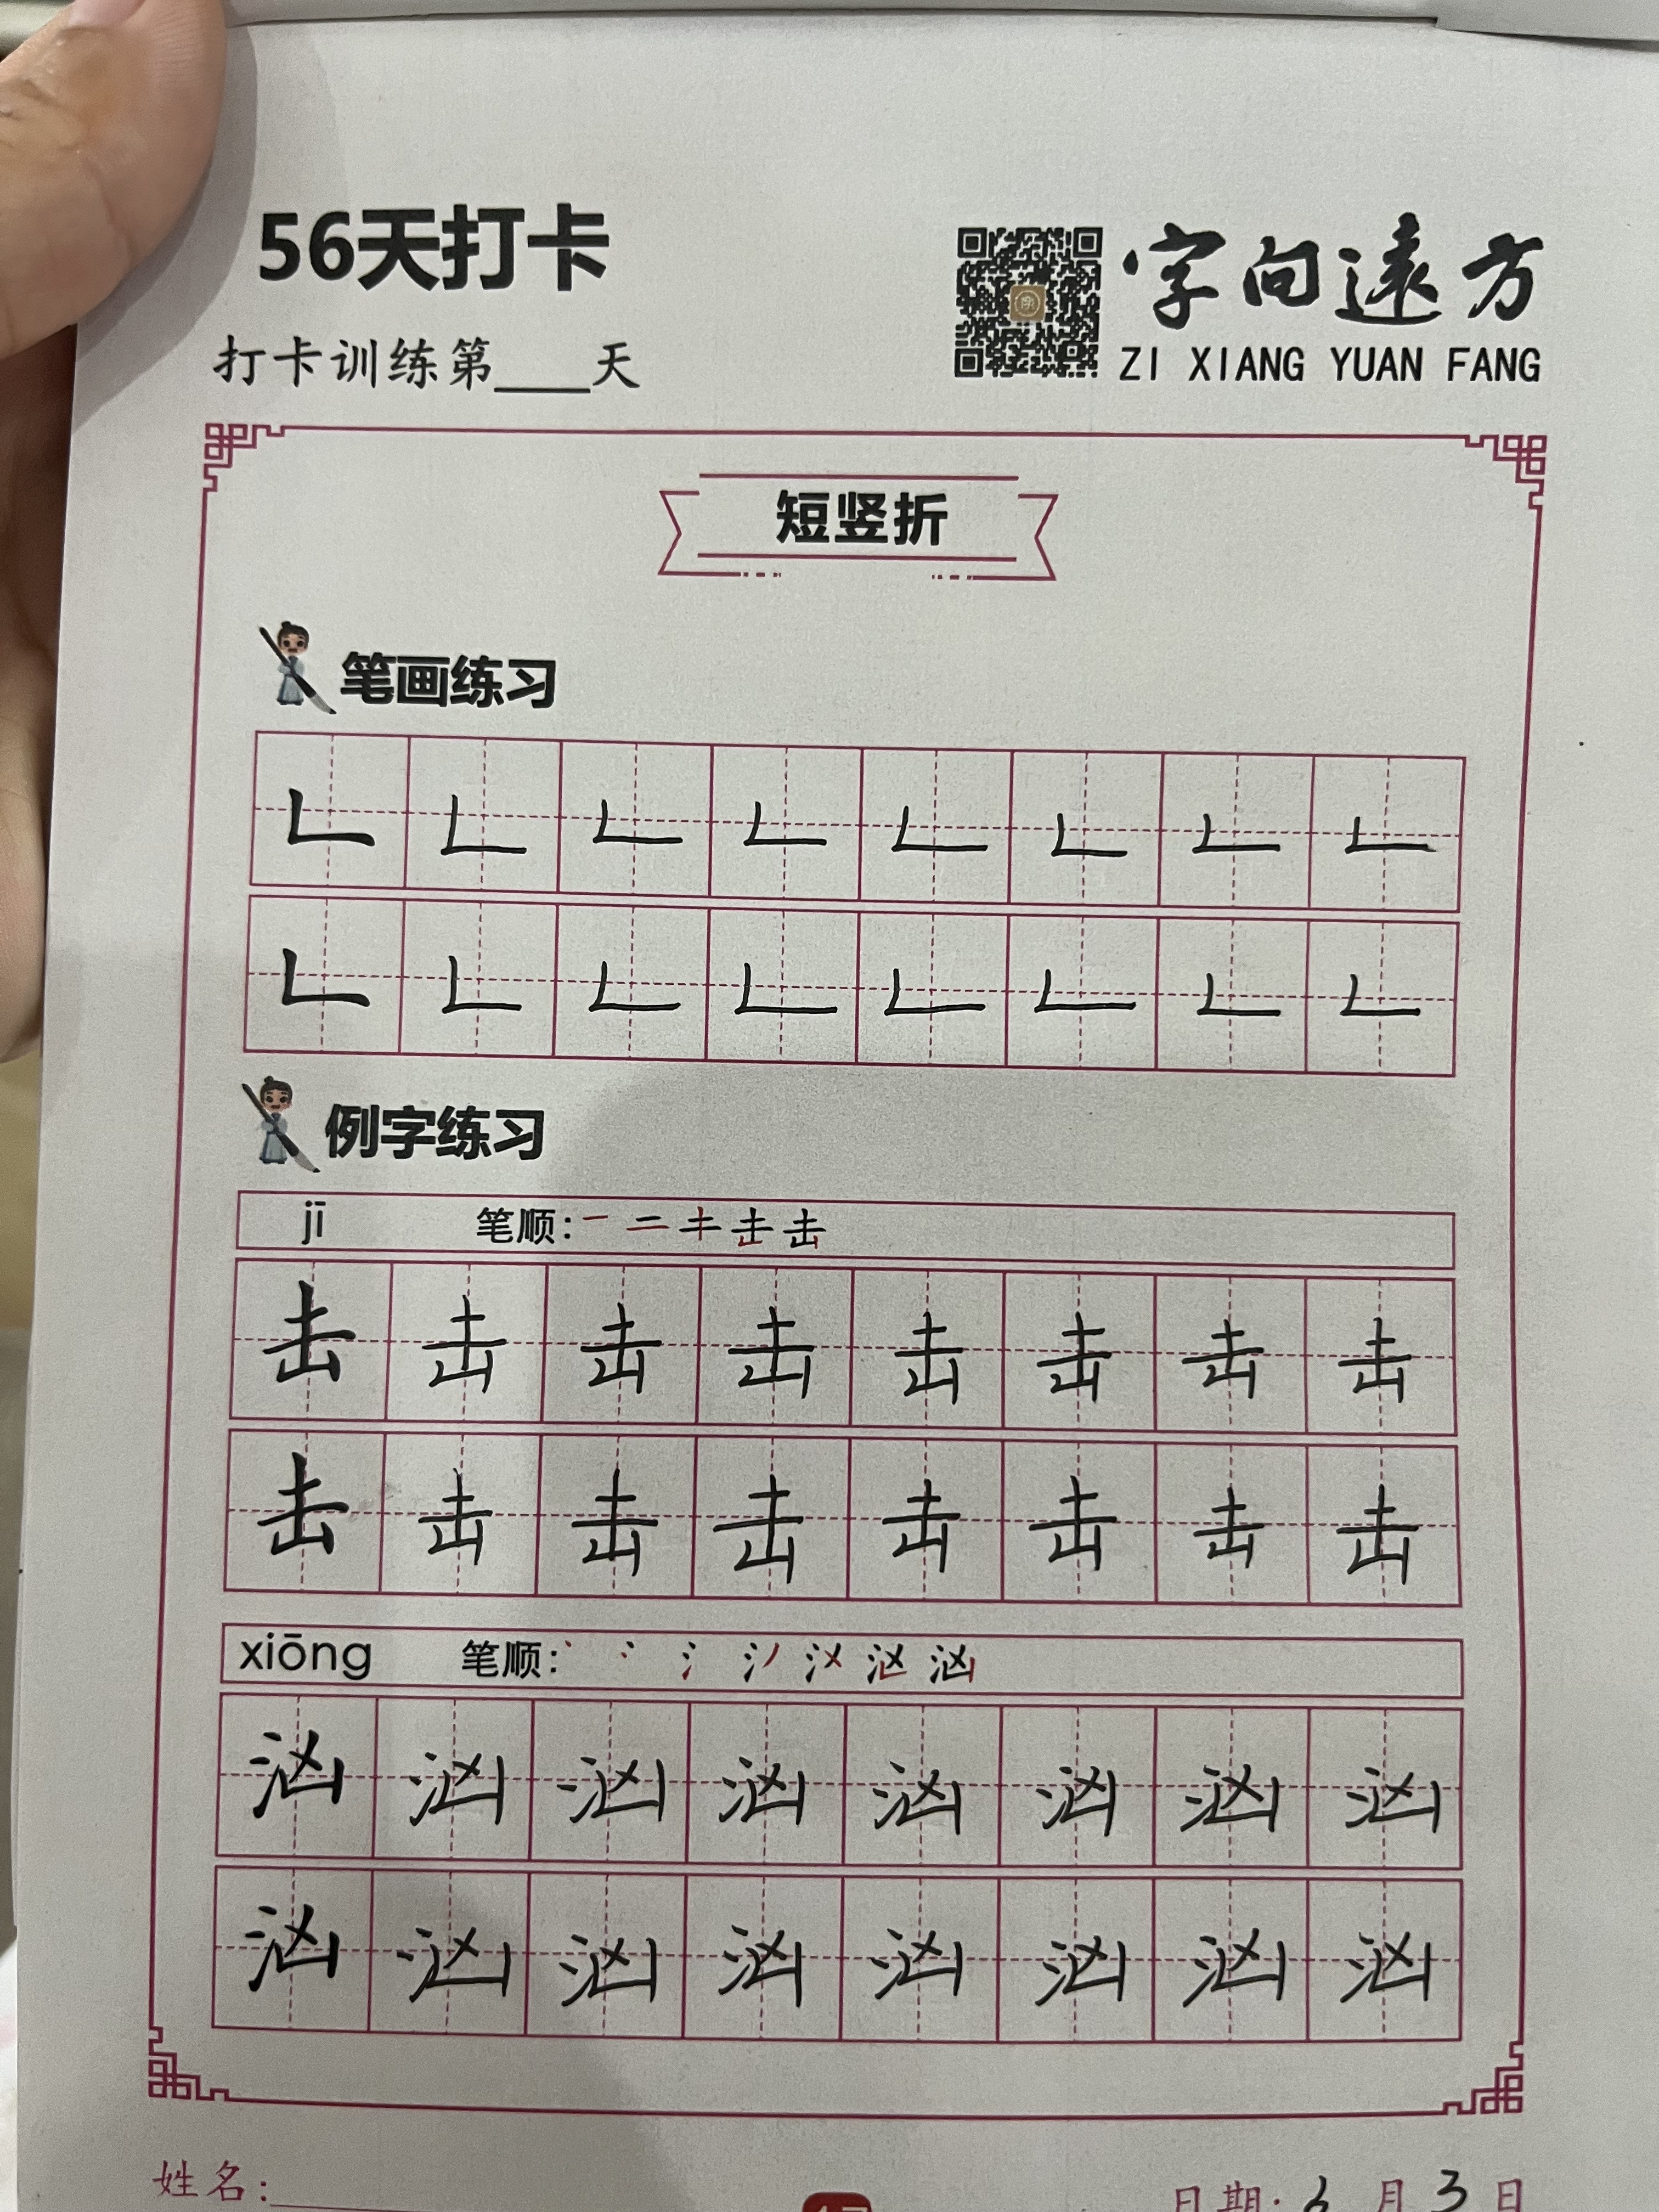 56天打卡
字向遠方
打卡训练第____天
ZI XIANG YUAN FANG
短竖折
笔画练习
𠃊 𠃊 𠃊 𠃊 𠃊 𠃊 𠃊 𠃊
𠃊 𠃊 𠃊 𠃊 𠃊 𠃊 𠃊 𠃊
例字练习
jī 笔顺:一 二 キ 击 击
击 击 击 击 击 击 击 击
击 击 击 击 击 击 击 击
xiōng 笔顺: 汹
汹 汹 汹 汹 汹 汹 汹 汹
汹 汹 汹 汹 汹 汹 汹 汹
姓名:
日期: 6 月 3 日